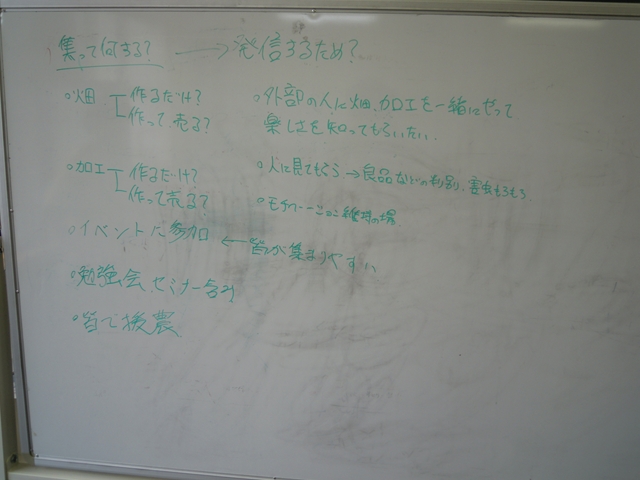 集って何する? → 発信するため?
○畑
作るだけ?
作って売る?
○加工
作るだけ?
作って売る?
○イベントに参加 ← 皆が集まりやすい
○勉強会、セミナー含み
○皆で援農
○外部の人に畑、加工を一緒にやって
楽しさを知ってもらいたい。
○人に見てもらう → 良品などの判別、害虫もろもろ
維持の場